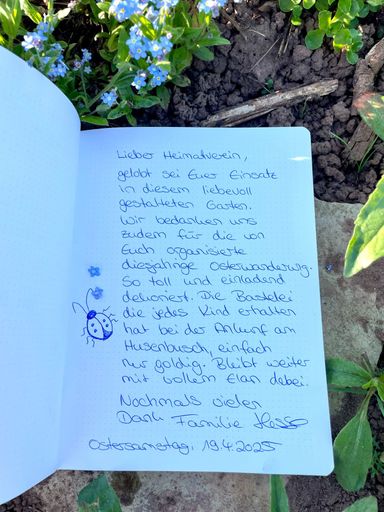 Lieber Heimatverein,
gelobt sei Euer Einsatz
in diesem liebevoll
gestalteten Garten.
Wir bedanken uns
zudem für die von
Euch organisierte
diesjährige Osterwanderung.
So toll und einladend
dekoriert. Die Bastelei
die jedes Kind erhalten
hat bei der Ankunft am
Husenbusch, einfach
nur goldig. Bleibt weiter
mit vollem Elan dabei.
Nochmals vielen
Dank Familie Hesse
Ostersamstag, 19.4.2025